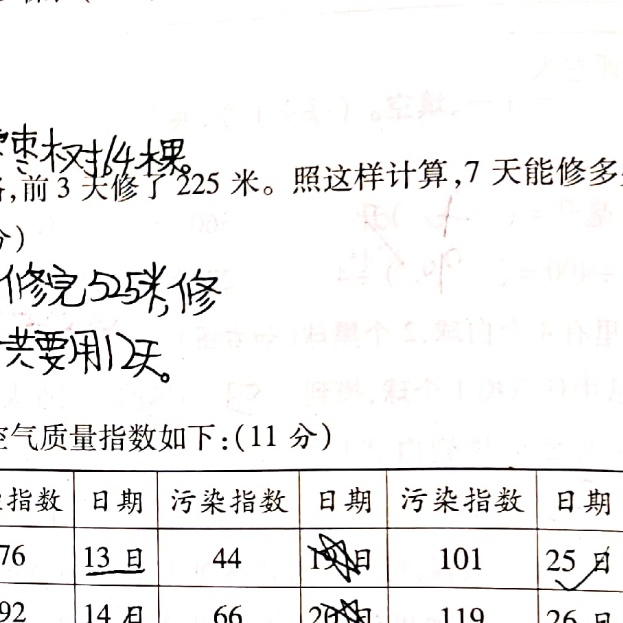 枣树64棵。
,前3天修了225米。照这样计算,7天能修多
分)
修完525米,修
共要用12天。
空气质量指数如下:(11分)
指数 日期 污染指数 日期 污染指数 日期
76 13日 44 19日 101 25日
92 14日 66 20日 119 26日